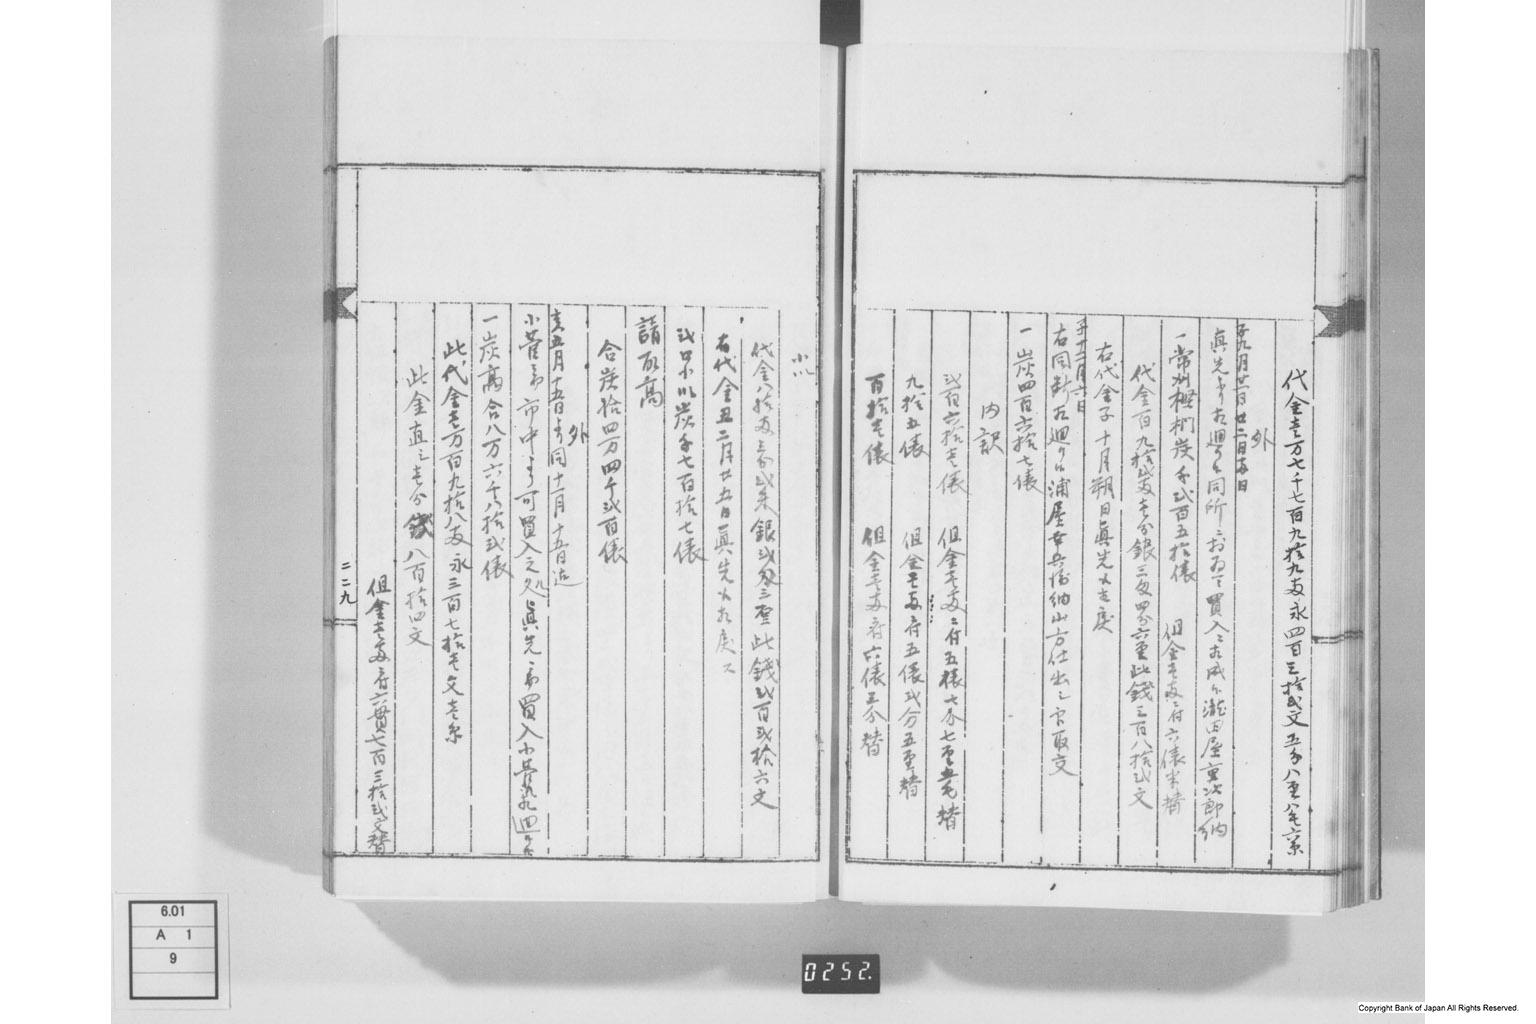 代金壱万七千七百九拾九両永四百三拾弐文五分八厘八毛六糸
外
子九月廿一日廿二日両日
真先ゟ相廻り候同所ニおゐて買入ニ相成候瀧田屋寅次郎納
一常州椚炭千弐百五拾俵 但金壱両ニ付六俵半替
代金百九拾弐両壱分銀三匁四分六厘此錢三百八拾弐文
右代金子十月朔日真先江相戻
子十二月六日
右同断相廻り候浦屋安兵衛納山方仕出し之口取交
一炭四百六拾七俵
内訳
弐百六拾壱俵 但金壱両ニ付五俵七分七厘五毛替
九拾五俵 但金壱両ニ付五俵弐分五厘替
百拾壱俵 但金壱両ニ付六俵三分替
小以
代金八拾両三分弐朱銀弐匁三厘此錢弐百弐拾六文
右代金丑二月廿五日真先江相戻ス
弐口小以炭千七百拾七俵
請取高
合炭拾四万四千弐百俵
外
亥五月十五日ゟ同十一月十五日迄
小菅ニ而市中ゟ可買入之処真先ニ而買入小菅江相廻り候
一炭高合八万六千八拾弐俵
此代金壱万百九拾八両永三百七拾壱文壱分
此金直シ壱分錢八百拾四文
但金壱両ニ付六貫七百三拾弐文替
二二九
6.01
A 1
9
0252.
Copyright Bank of Japan All Rights Reserved.